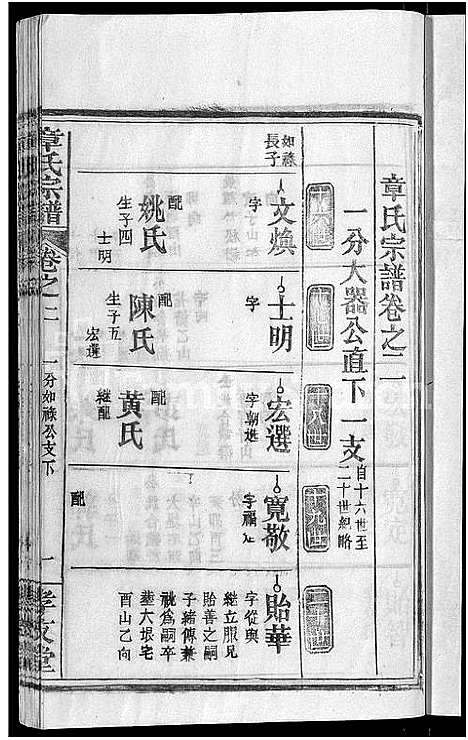 章氏宗譜卷之二
一分大器公直下一支自十六世至二十世紀略
十六世
十七世
十八世
十九世
二十世
如祿長子
文煥
字
配
姚氏
生子四
士明
士明
字
配
陳氏
生子五
宏選
宏選
字朝進
配
黃氏
繼配
寬敬
字福
配
貽華
字從與
繼立服兄
貽善之嗣
子緒傳兼
祧爲嗣卒
葬六垠宅
酉山乙向
章氏宗譜
卷之二
一分如祿公支下
一
孝友堂